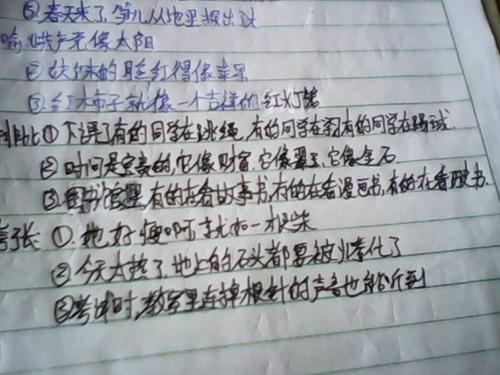 ③春天来了,笋儿从地里探出头
喻①共产党像太阳
②妹妹的脸红得像苹果
③红柿子就像一个吉祥的红灯笼
排比①下课了有的同学在跳绳,有的同学在 有的同学在踢球.
②时间是宝贵的,它像财富,它像 它像金石
③图书馆里有的在看故事书,有的在看漫画书,有的在看 书.
夸张①.她好瘦啊就如一根柴
②今天太热了,地上的石头都要被烤化了
③考试时,教室里连掉根针的声音也能听到